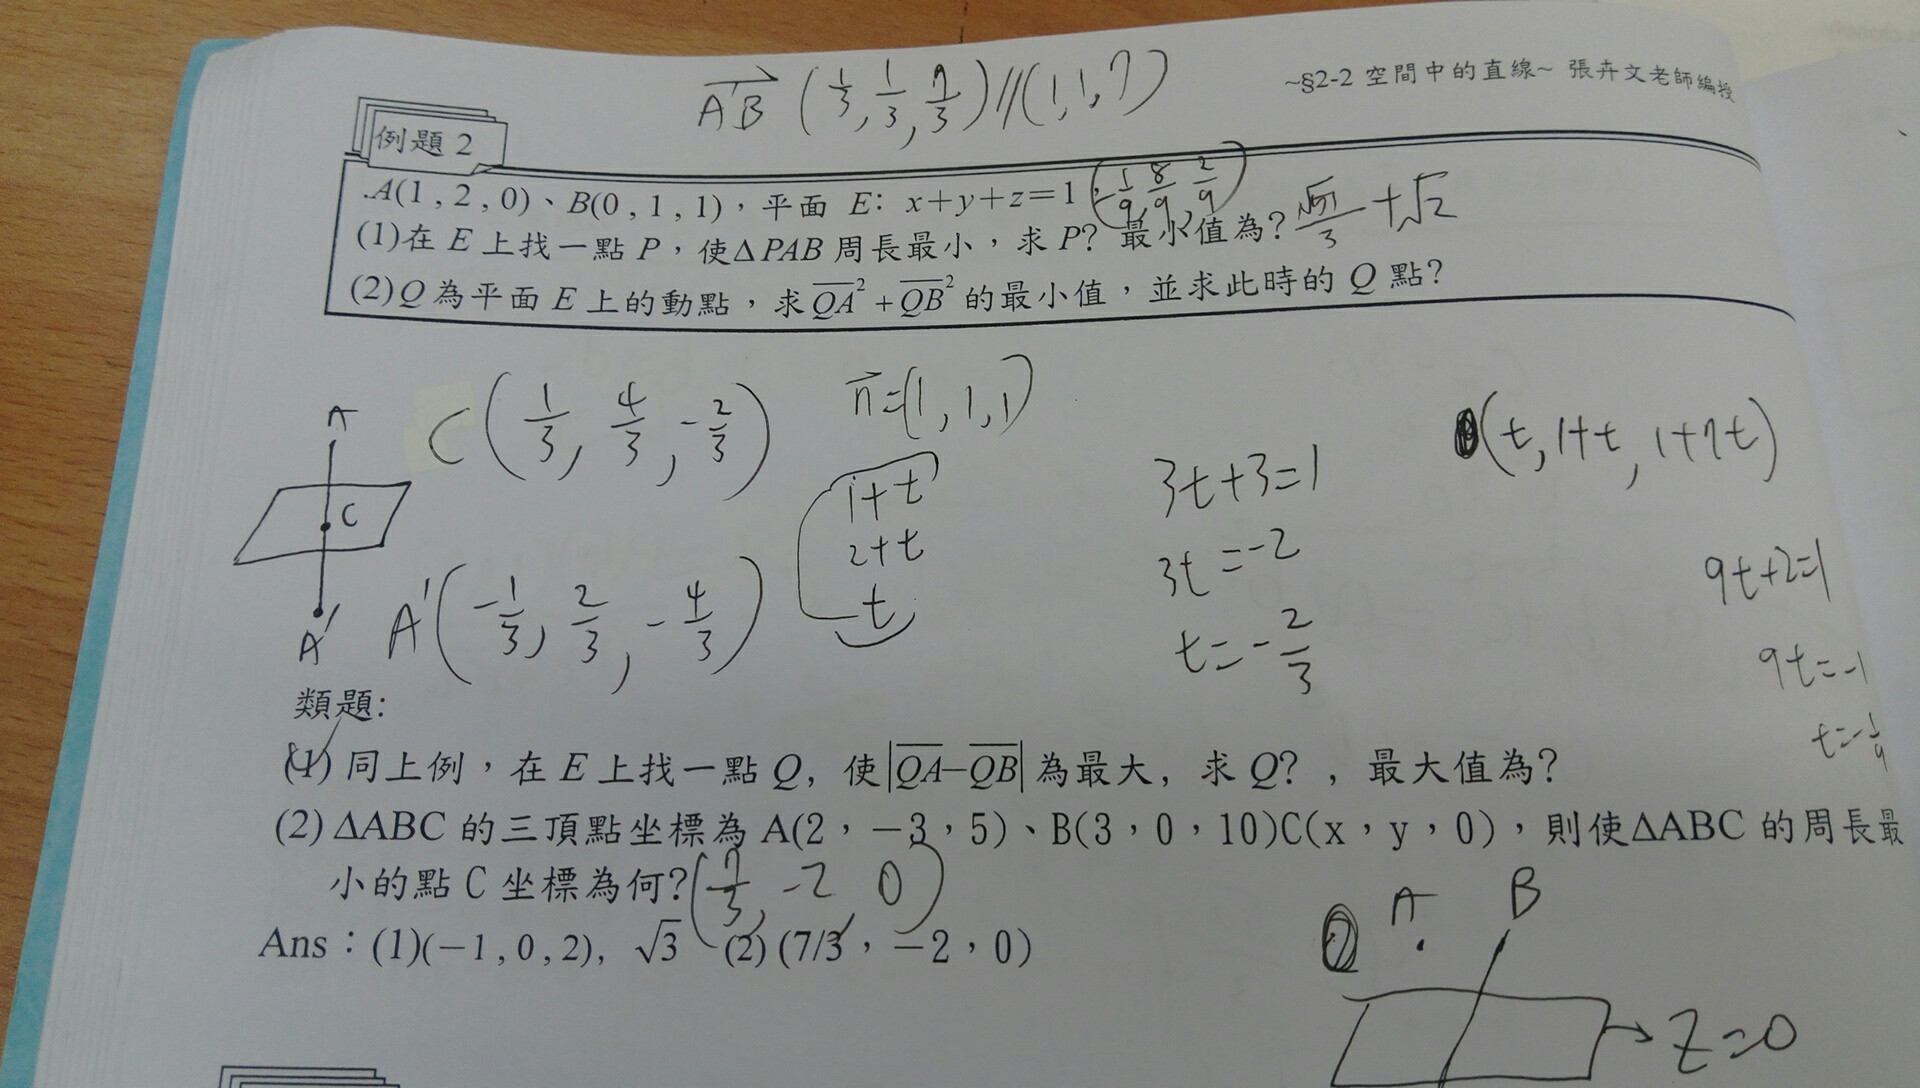 ~§2-2 空間中的直線~ 張卉文老師編授
A'B (1/3, 1/3, 7/3) // (1, 1, 7)
例題 2
.A(1 , 2 , 0)、B(0 , 1 , 1),平面 E: x+y+z=1 (-1/9, 8/9, 2/9)
(1)在 E 上找一點 P,使ΔPAB 周長最小,求 P? 最小值為? √51/3 +√2
(2)Q 為平面 E 上的動點,求 QA² + QB² 的最小值,並求此時的 Q 點?
A
C
A'
C (1/3, 4/3, -2/3)
n=(1, 1, 1)
A' (-1/3, 2/3, -4/3)
1+t
2+t
t
3t+3=1
3t=-2
t=-2/3
(t, 1+t, 1+7t)
9t+2=1
9t=-1
t=-1/9
類題:
(1) 同上例,在 E 上找一點 Q, 使|QA−QB| 為最大, 求 Q? , 最大值為?
(2) ΔABC 的三頂點坐標為 A(2,−3,5)、B(3,0,10)C(x,y,0),則使ΔABC 的周長最
小的點 C 坐標為何? (7/3, -2, 0)
Ans:(1)(−1 , 0 , 2), √3 (2) (7/3,−2,0)
A
B
Z=0